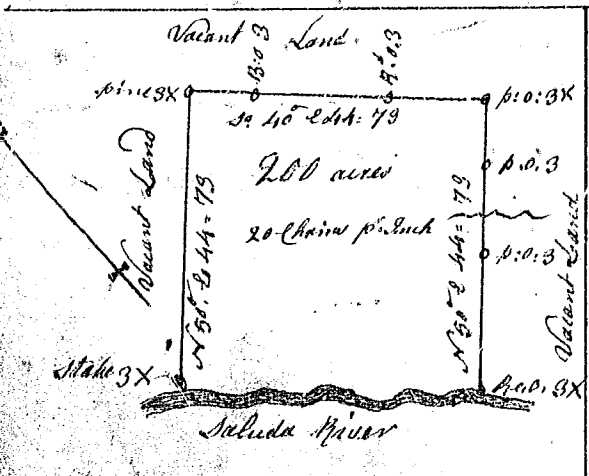 Vacant Land
B:0 3
R.d 0.3
pine 3X
p:0:3X
So 40° E 44=73
200 acres
p.0.3
20 Chains pr Inch
p:0:3
Vacant Land
N 50° E 44=73
N 50° E 44=73
Vacant Land
Stake 3X
Rd.0.3X
Saluda River